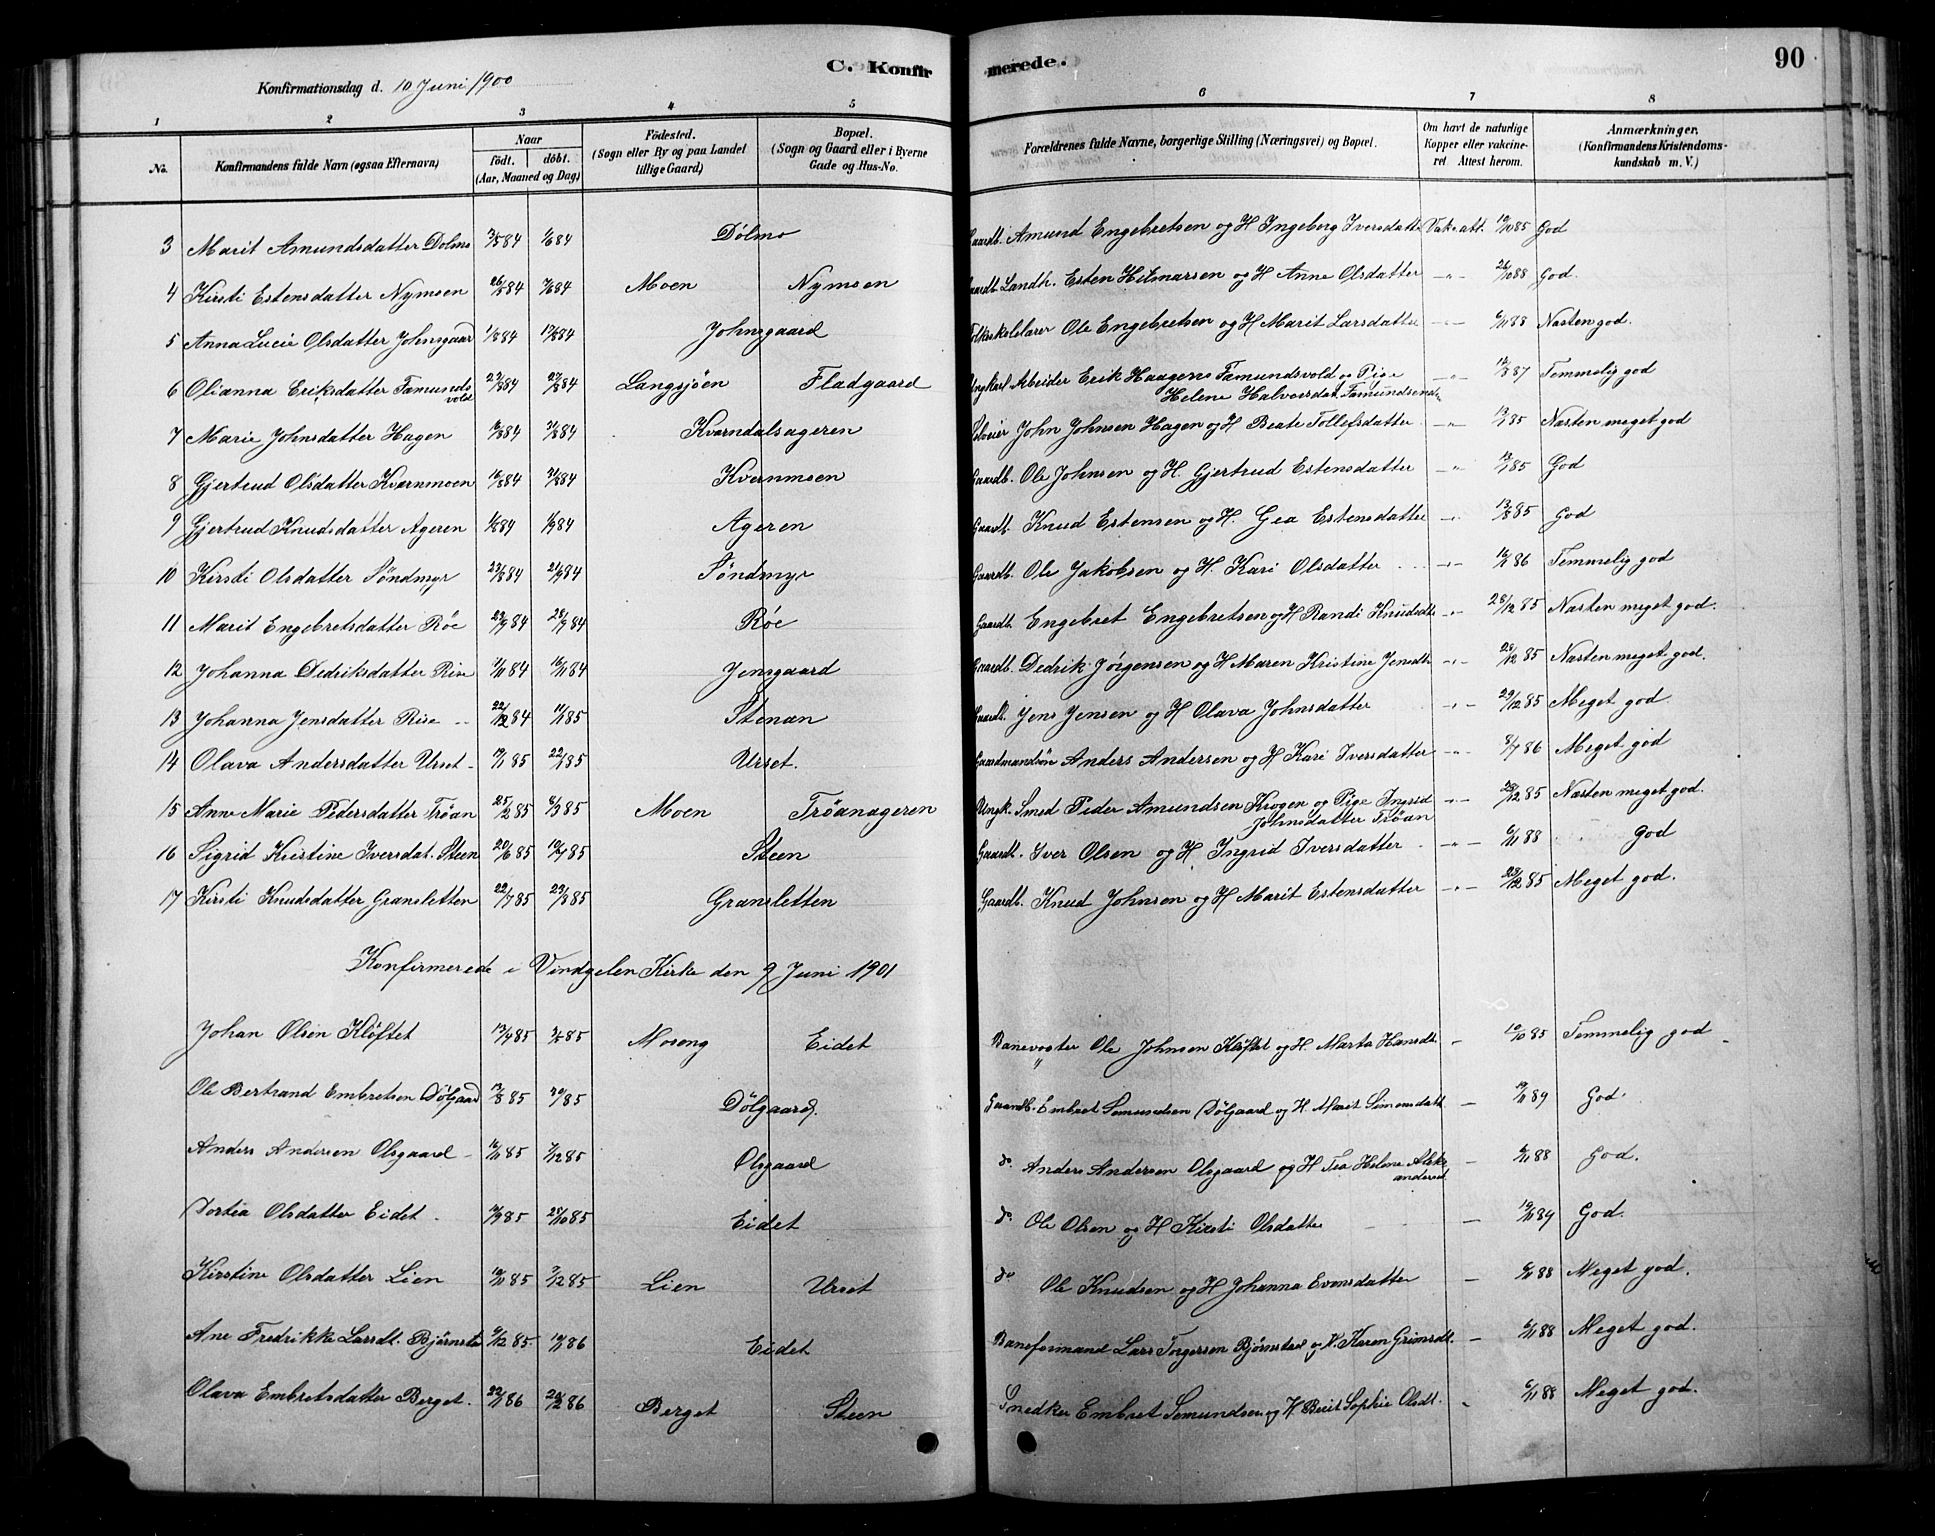 C. Konfir merede. 90
Konfirmationsdag d. 10 Juni 1900
1 2 3 4 5 6 7 8
No.
Konfirmandens fulde Navn (øgsaa Efternavn)
Naar
födt. döbt.
(Aar, Maaned og Dag)
Födested.
(Sogn eller By og paa Landet
tillige Gaard)
Bopæl.
(Sogn og Gaard eller i Byerne
Gade og Hus-No.
Forældrenes fulde Navne, borgerlige Stilling (Næringsvei) og Bopæl.
Om havt de naturlige
Kopper eller vakcine-
ret Attest herom.
Anmærkninger.
(Konfirmandens Kristendoms-
kundskab m. V.)
3 Marit Amundsdatter Dolmo 3/5 84 84 Dölmo Gaardb. Amund Engebretsen og H Ingeborg Iversdatter Vak. att. 19/10 85 God
4 Kirsti Estensdatter Nymoen 26/5 84 84 Moen Nymoen Gaardb. Landh. Esten Hilmarsen og H Anne Olsdatter 26/10 88 God.
5 Anna Lucie Olsdatter Johnsgaard 1/8 84 84 Johnsgaard Folkeskolelærer Ole Engebretsen og H Marit Larsdatter 6/11 88 Næsten god.
6 Olianna Eriksdatter Famunds 84 84 Langsjöen Fladgaard Ungkarl Arbeider Erik Haagens Famundsvold og Pige 87 Temmelig god
vold
Helene Halvorsdat. Famundsend
7 Marie Johnsdatter Hagen 84 84 Kvarndalsageren Selveier John Johnsen Hagen og H Beate Tollefsdatter 85 Næsten meget god
8 Gjertrud Olsdatter Kvernmoen 84 84 Kvernmoen Gaardb. Ole Johnsen og H. Gjertrud Estensdatter 85 God
9 Gjertrud Knudsdatter Ageren 84 84 Ageren Gaardb. Knud Estensen og H. Gea Estensdatter 13/8 85 God
10 Kirsti Olsdatter Söndmyr 84 21/9 84 Söndmyr Gaardb. Ole Jakobsen og H. Kari Olsdatter 86 Temmelig god
11 Marit Engebretsdatter Röe 84 28/9 84 Röe Gaardb. Engebret Engebretsen og H Randi Knudsdt 28/12 85 Næsten meget god.
12 Johanna Dedriksdatter Rise 84 16/11 84 Jensgaard Gaardb. Dedrik Jörgensen og H Maren Kristine Jensdt 29/12 85 Næsten meget god.
13 Johanna Jensdatter Rise 22/12 84 11/1 85 Stenan Gaardb. Jens Jensen og H Olava Johnsdatter 29/12 85 Meget god
14 Olava Andersdatter Urset 19/1 85 85 Urset. Gaardmandsön Anders Andersen og H Kari Iversdatter 8/7 86 Meget god
15 Anne Marie Pedersdatter Tröan 25/2 85 8/3 85 Moen Tröanageren Ungk. Smed Peder Amundsen Krogen og Pige Ingrid 29/12 85 Næsten meget god.
Johnsdatter Tröan
16 Sigrid Kristine Iversdat. Steen 20/6 85 19/7 85 Steen Gaardb. Iver Olsen og H. Ingrid Iversdatter 6/11 88 God
17 Kirsti Knudsdatter Gransletten 22/7 85 85 Gransletten Gaardb. Knud Johnsen og H Marit Estensdatter 29/12 85 Meget god.
Konfirmerede i Vindgelen Kirke den 9 Juni 1901
Johan Olsen Klöftet 13/4 85 85 Moseng Eidet Banevogter Ole Johnsen Klöftet og H. Marta Hansdt 10/10 85 Temmelig god
Ole Bertrand Embretsen Dölgaard 85 85 Dölgaard. Gaardb. Embret Semundsen Dölgaard og H Marit Simensdatt 19/11 89 God.
Anders Andersen Olsgaard 16/11 85 85 Olsgaard do. Anders Andersen Olsgaard og H Tea Helene Aleks 6/11 88 God.
andersd.
Dortea Olsdatter Eidet 85 25/10 85 Eidet do. Ole Olsen og H Kirsti Olsdatter 89 God.
Kirstine Olsdatter Lien 85 85 Lien Urset do Ole Knudsen og H Johanna Evensdatter 6/11 88 Meget god.
Ane Fredrikke Larsdt. Björnstad 6/12 85 86 Eidet Baneformand Lars Torgersen Björnstad og H. Karen Grimsdt. 6/11 88 Meget god.
Olava Embretsdatter Berget 22/1 86 86 Berget Steen Snedker Embret Semundsen og H Berit Sophie Olsdt. 6/11 88 Meget god.